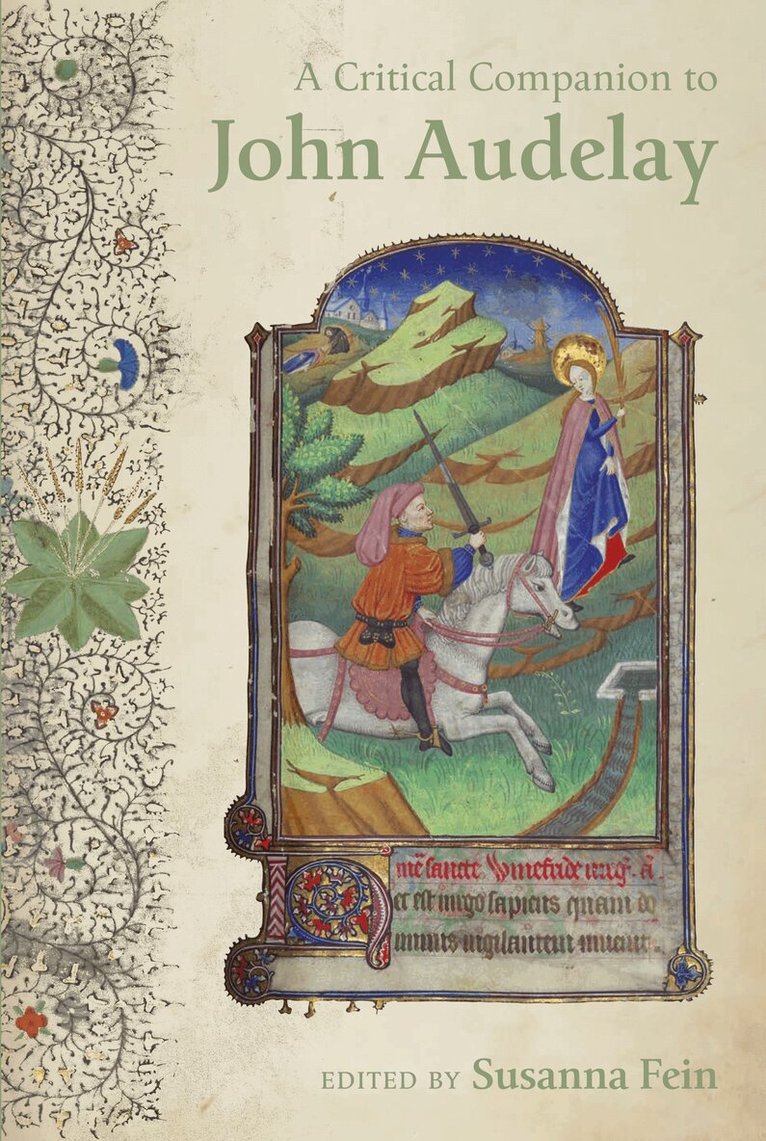 A Critical Companion to
John Audelay
sancte
Hec est uirgo sapiens quam do
minus uigilantem inuenit.
EDITED BY Susanna Fein